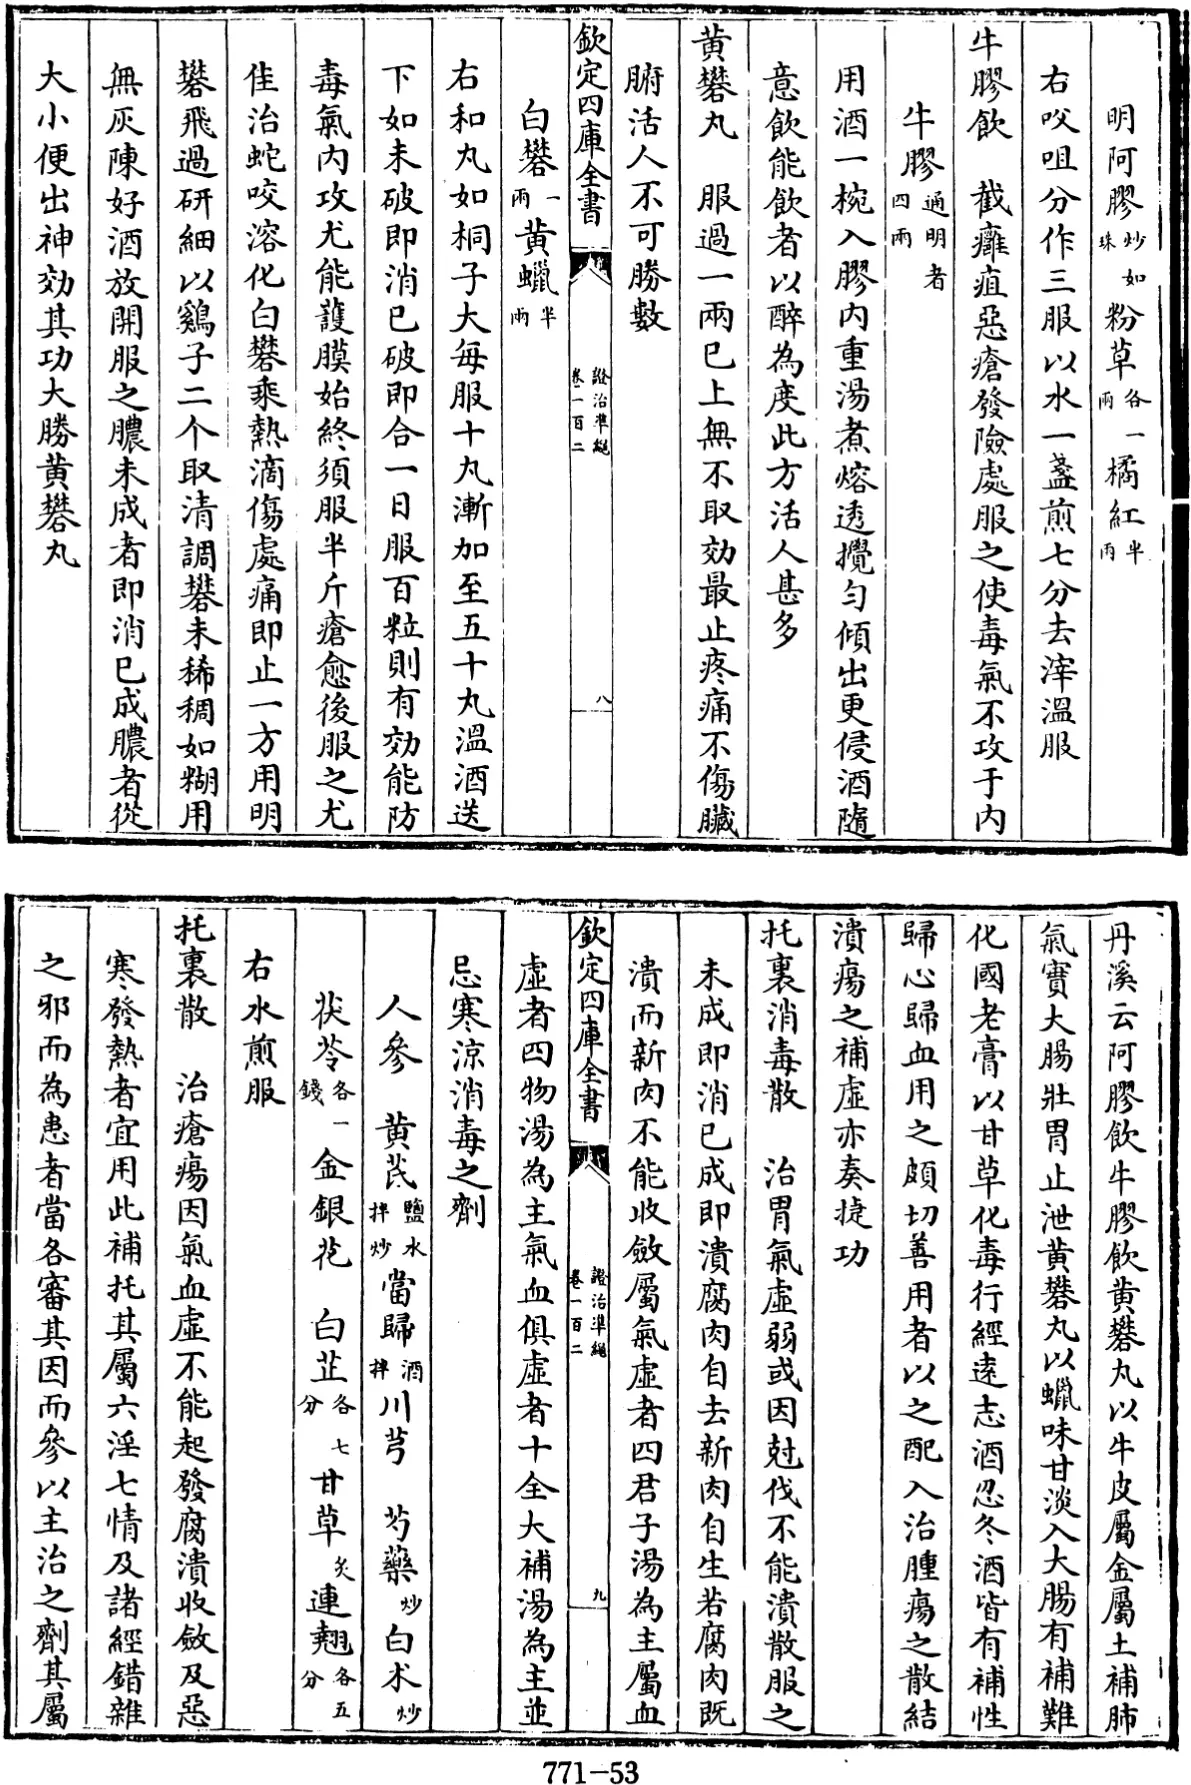 明阿膠炒如珠粉草各一兩橘紅半兩
右㕮咀分作三服以水一盞煎七分去滓溫服
牛膠飲　截癰疽惡瘡發險處服之使毒氣不攻于内
牛膠通明者四兩
用酒一椀入膠内重湯煮熔透攪匀傾出更侵酒隨
意飲能飲者以醉為度此方活人甚多
黄礬丸　服過一兩已上無不取効最止疼痛不傷臟
腑活人不可勝數
欽定四庫全書　證治準繩卷一百二　八
白礬一兩黄蠟半兩
右和丸如桐子大每服十丸漸加至五十丸溫酒送
下如未破即消已破即合一日服百粒則有効能防
毒氣内攻尤能護膜始終須服半斤瘡愈後服之尤
佳治蛇咬溶化白礬乘熱滴傷處痛即止一方用明
礬飛過研細以鷄子二个取清調礬末稀稠如糊用
無灰陳好酒放開服之膿未成者即消已成膿者從
大小便出神効其功大勝黄礬丸
丹溪云阿膠飲牛膠飲黄礬丸以牛皮屬金屬土補肺
氣實大腸壯胃止泄黄礬丸以蠟味甘淡入大腸有補難
化國老膏以甘草化毒行經遠志酒忍冬酒皆有補性
歸心歸血用之頗切善用者以之配入治腫瘍之散結
潰瘍之補虛亦奏捷功
托裏消毒散　治胃氣虛弱或因尅伐不能潰散服之
未成即消已成即潰腐肉自去新肉自生若腐肉既
潰而新肉不能收斂屬氣虛者四君子湯為主屬血
欽定四庫全書　證治準繩卷一百二　九
虛者四物湯為主氣血俱虛者十全大補湯為主並
忌寒涼消毒之劑
人參　黄芪鹽水拌炒當歸酒拌川芎　芍藥炒白术炒
茯苓各一錢金銀花　白芷各七分甘草炙連翹各五分
右水煎服
托裏散　治瘡瘍因氣血虛不能起發腐潰收斂及惡
寒發熱者宜用此補托其屬六淫七情及諸經錯雜
之邪而為患者當各審其因而參以主治之劑其屬
771-53